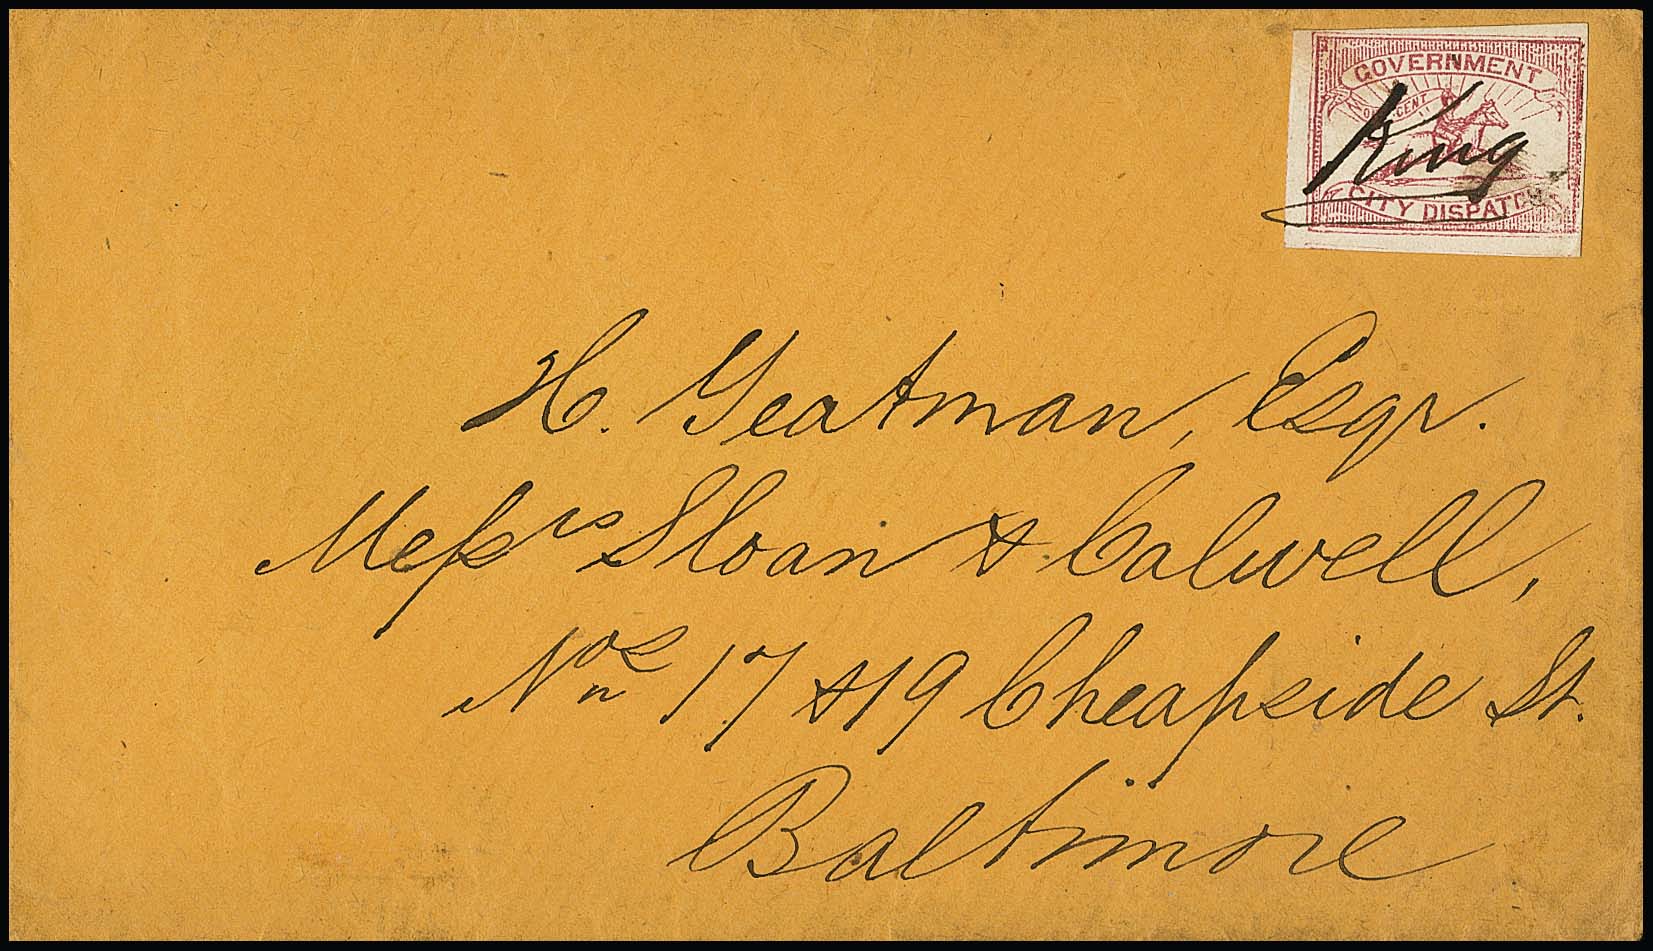 GOVERNMENT
ONE CENT
King
CITY DISPATCH
H. Yeatman, Esqr.
Messrs Sloan & Calwell,
Nos 17 & 19 Cheapside St.
Baltimore